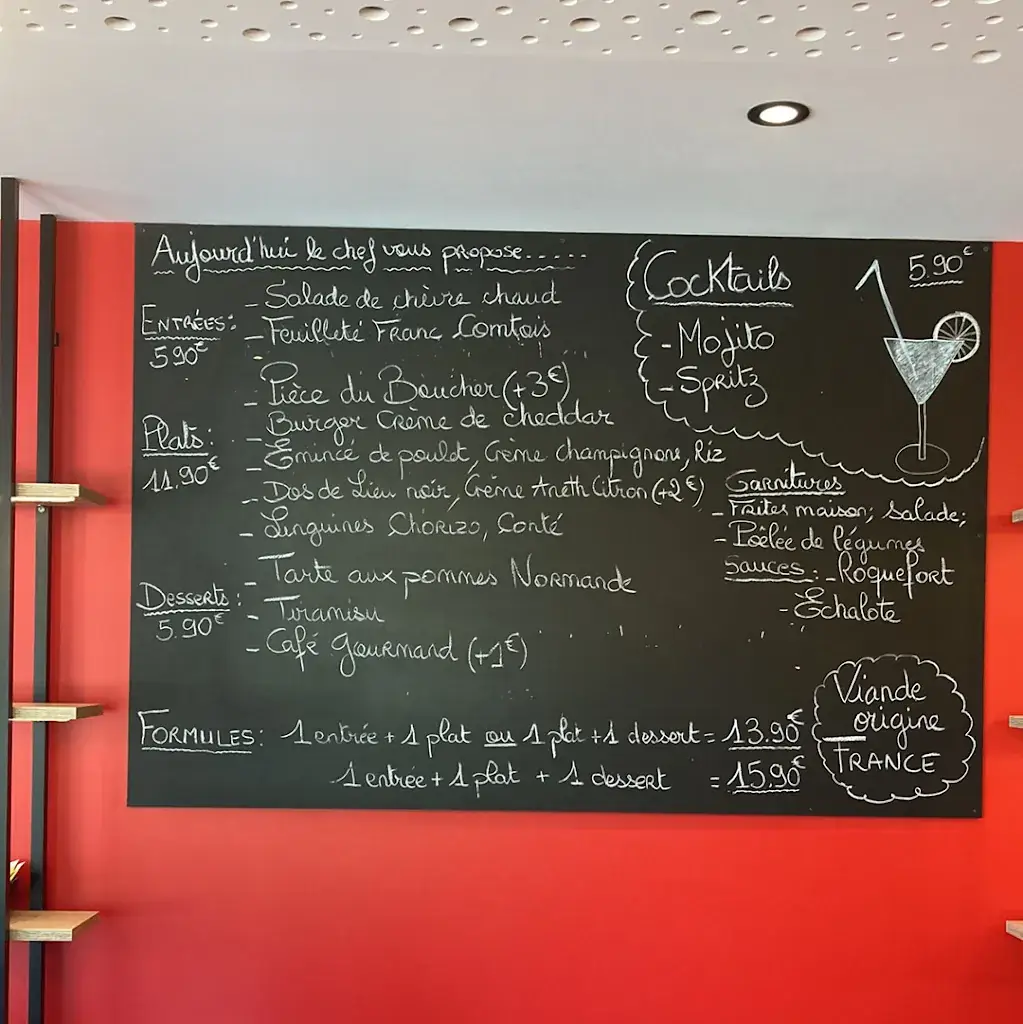 Aujourd'hui le chef vous propose.....
ENTRÉES:
5.90€
- Salade de chèvre chaud
- Feuilleté Franc Comtois
Plats:
11.90€
- Pièce du Boucher (+3€)
- Burger Crème de cheddar
- Émincé de poulet, Crème champignons, Riz
- Dos de Lieu noir, Crème Aneth Citron (+2€)
- Linguines Chorizo, Comté
Desserts:
5.90€
- Tarte aux pommes Normande
- Tiramisu
- Café Gourmand (+1€)
Cocktails
5.90€
- Mojito
- Spritz
Garnitures
- Frites maison; Salade;
- Poêlée de légumes
Sauces: - Roquefort
- Échalote
FORMULES: 1 entrée + 1 plat ou 1 plat + 1 dessert = 13.90€
1 entrée + 1 plat + 1 dessert = 15,90€
Viande
origine
FRANCE